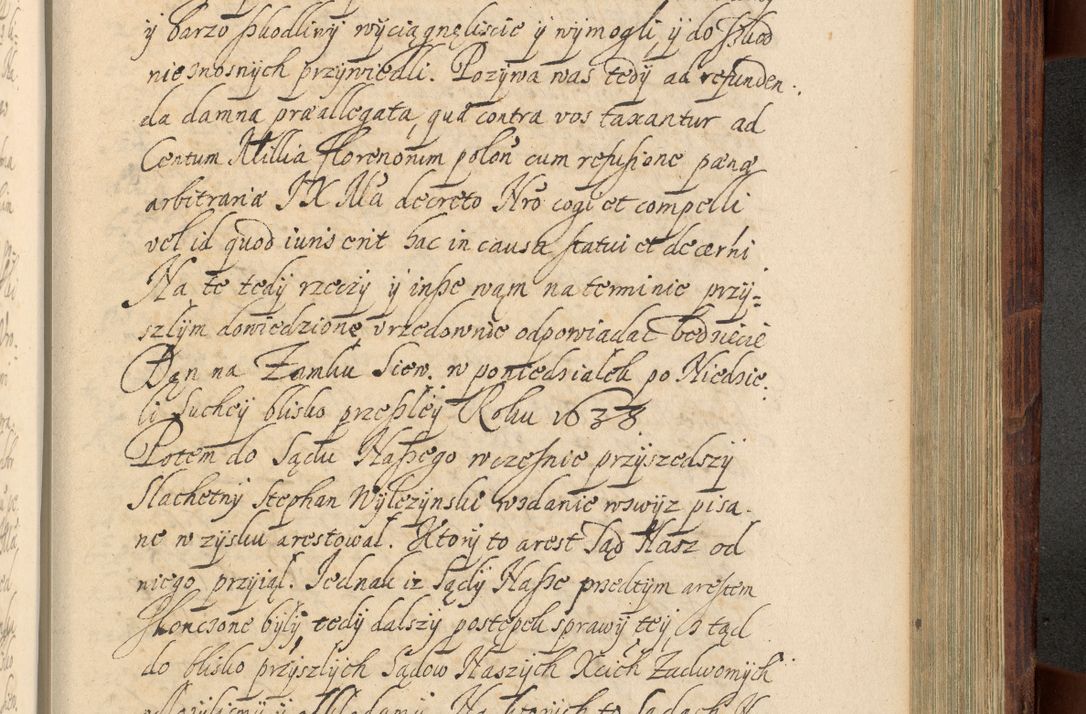 ÿ barzo szkodliwÿ wÿciągnęliscie ÿ wÿmogli, ÿ do szkod
nieznosnÿch przÿwiedli. Pozÿwa was tedÿ ad refunden
da damna præallegata, quæ contra vos taxantur ad
Centum Millia florenorum polon cum refusione pænæ
arbitrariæ JX Ma decreto Nro cogi et compelli
vel id quod iuris erit hac in causa statui et decærni
Na te tedÿ rzeczÿ ÿ insze wąm na terminie przÿ=
szlÿm dowiedzione vrzedownie odpowiadac bedziecie
Dąn na Zamku Siew. w poniedzialek po Niedzie.
li Suchey blisko przeszleÿ Roku 1638
Potem do Sądu Naszego wczesnie przÿszedszÿ
Slachetnÿ Stephan Wÿlezÿnski wzdanie wzwÿz pisa.
ne w zÿsku arestowal. Ktorÿ to arest Sąd Nasz od
niego przÿiąl. Jednak iz Sądÿ Nasze przed tÿm arestem
skonczone bÿlÿ tedÿ dalszÿ postępek sprawÿ teÿ z tąd
do blisko przÿszlÿch Sądow Naszÿch Xcich Zadwornÿch
odlozÿlismÿ ÿ odkladamÿ. Na ktorÿch to Sądach N